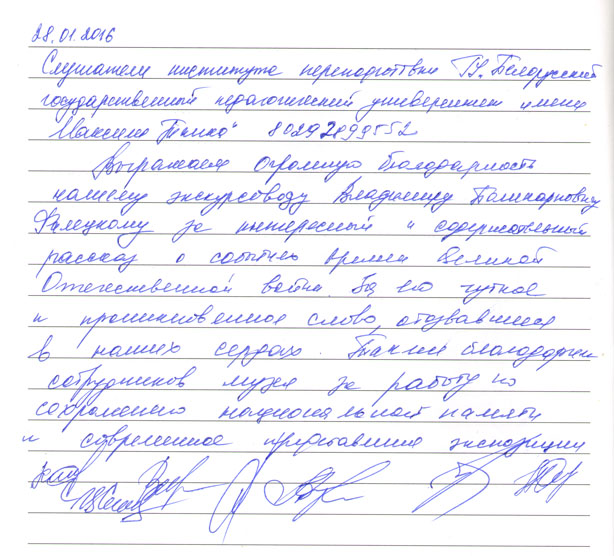 28.01.2016
Слушатели института переподготовки ГУ "Белорусский
государственный педагогический университет имени
Максима Танка" 80292199552
Выражаем огромную благодарность
нашему экскурсоводу Владимиру
за интересный и содержательный
рассказ о событиях времен Великой
Отечественной войны. За его чуткое
и проникновенное слово, отозвавшееся
в наших сердцах. Также благодарим
сотрудников музея за работу по
сохранению национальной памяти
и современное представление экспозиции